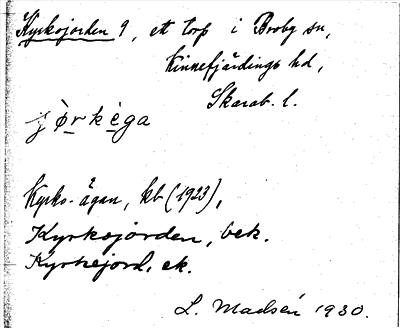 Kyrkojorden 9, ett torp i Broby sn,
Kinnefjärdings hd,
Skarab. l.
Kyrko-ägan, kb (1923),
Kyrksjorden, bek.
Kyrkejord, ek.
L. Madsén 1930.